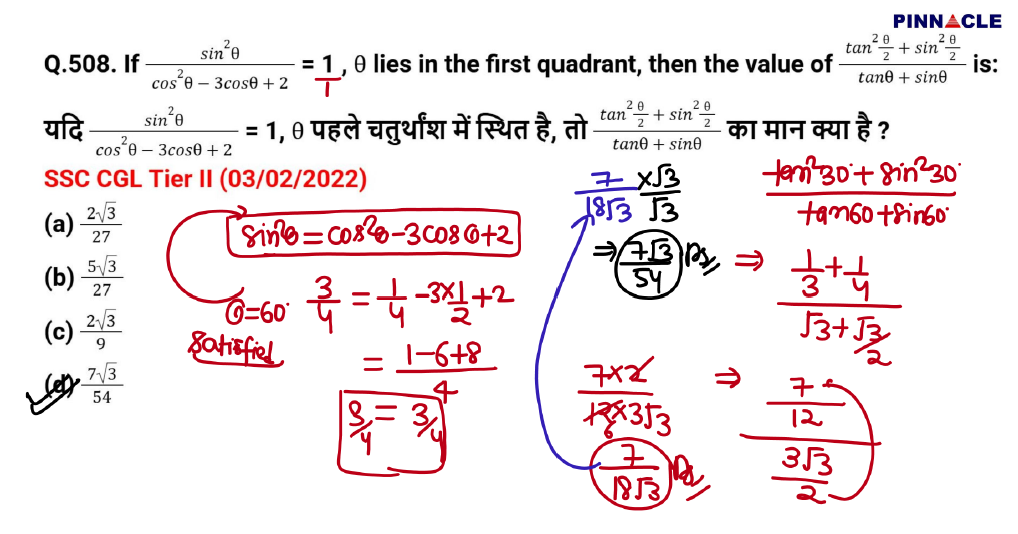 PINNACLE
Q.508. If sin²θ / (cos²θ − 3cosθ + 2) = 1, θ lies in the first quadrant, then the value of (tan² θ/2 + sin² θ/2) / (tanθ + sinθ) is:
1
यदि sin²θ / (cos²θ − 3cosθ + 2) = 1, θ पहले चतुर्थांश में स्थित है, तो (tan² θ/2 + sin² θ/2) / (tanθ + sinθ) का मान क्या है ?
SSC CGL Tier II (03/02/2022)
(a) 2√3/27
(b) 5√3/27
(c) 2√3/9
(d) 7√3/54
sin²θ = cos²θ − 3cosθ + 2
θ=60°
satisfied
3/4 = 1/4 − 3×1/2 + 2
= (1−6+8)/4
3/4 = 3/4
7/18√3 × √3/√3
⇒ 7√3/54 Ans
(tan²30° + sin²30°) / (tan60 + sin60°)
⇒ (1/3 + 1/4) / (√3 + √3/2)
⇒ (7/12) / (3√3/2)
7×2 / 12×3√3
6
7/18√3 Ans